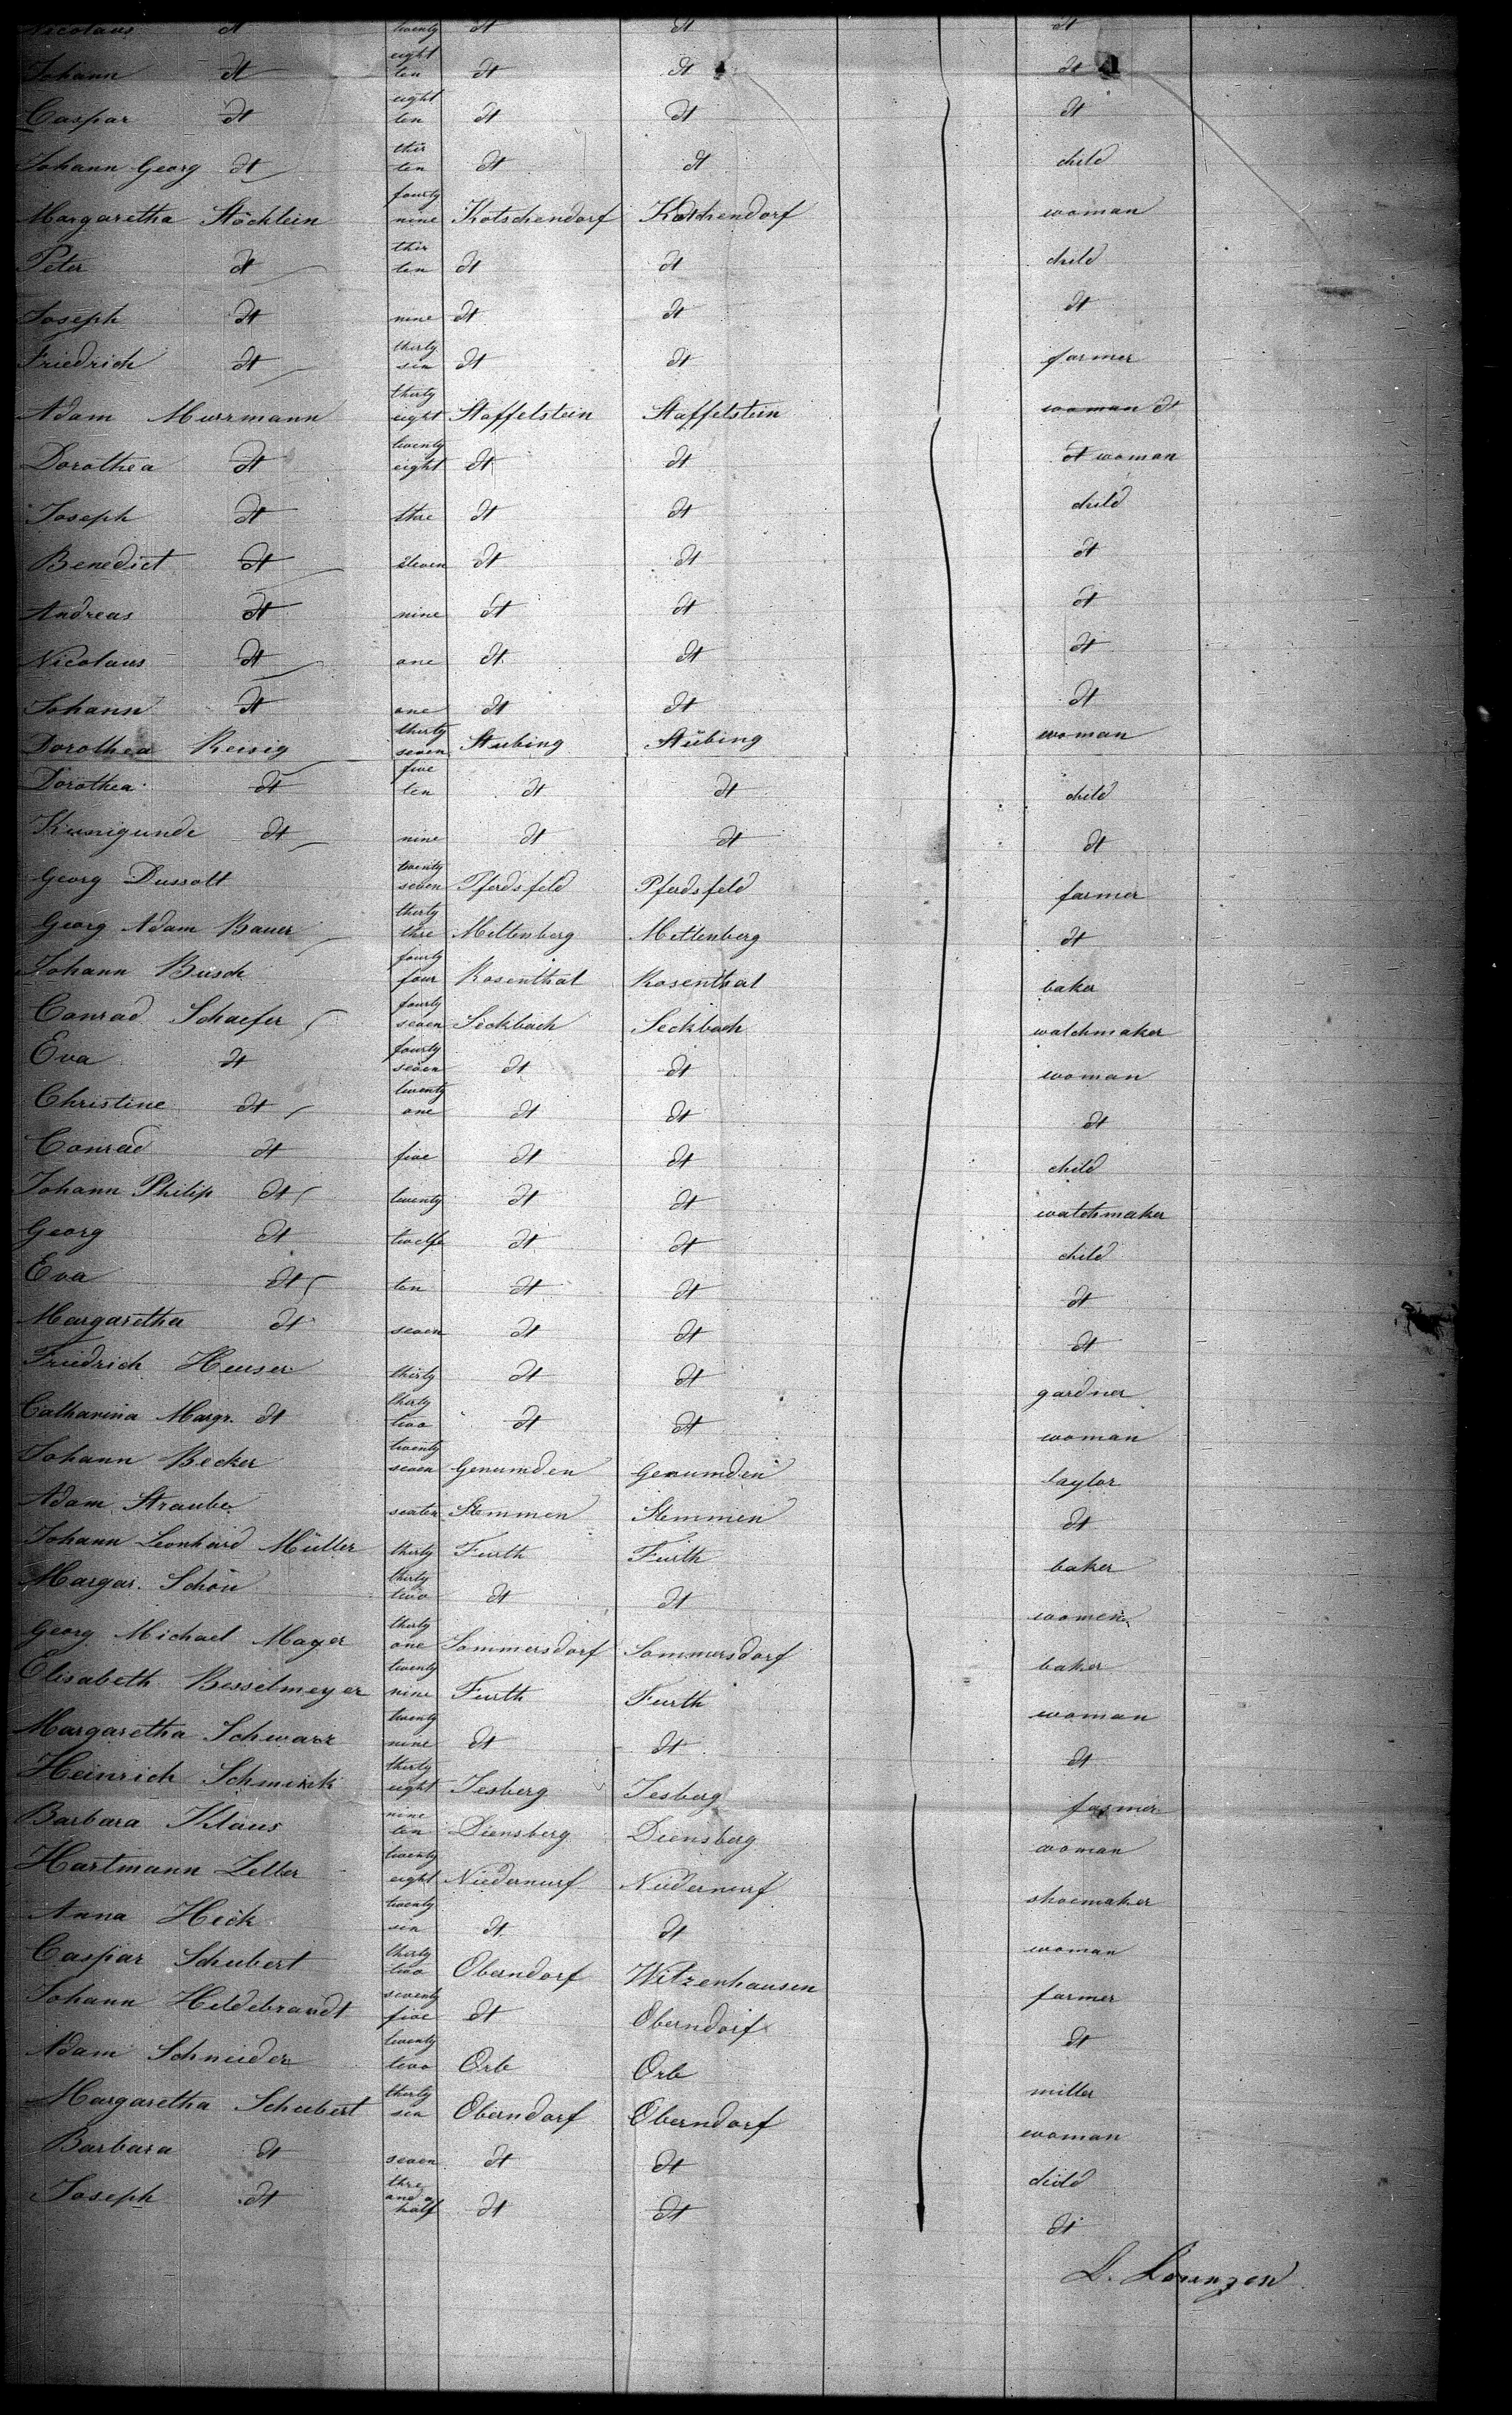 Nicolaus dt twenty dt dt dt
Johann dt eight ten dt dt dt
Caspar dt eight ten dt dt dt
Johann Georg dt thir ten dt dt child
Margaretha Stöcklein fourty nine Kotschendorf Kotschendorf woman
Peter dt thir ten dt dt child
Joseph dt nine dt dt dt
Friedrich dt thirty six dt dt farmer
Adam Murrmann thirty eight Staffelstein Staffelstein woman dt
Dorothea dt twenty eight dt dt dt woman
Joseph dt thre dt dt child
Benedict dt eleven dt dt dt
Andreas dt nine dt dt dt
Nicolaus dt one dt dt dt
Johann dt one dt dt dt
Dorothea Reisig thirty seven Stubing Stübing woman
Dorothea dt five ten dt dt child
Kunigunde dt nine dt dt dt
Georg Dussolt twenty seven Pferdsfeld Pferdsfeld farmer
Georg Adam Bauer thirty thre Mettenberg Mettenberg dt
Johann Busch fourty four Rosenthal Rosenthal baker
Conrad Schaefer fourty seven Seckbach Seckbach watchmaker
Eva dt fourty seven dt dt woman
Christine dt twenty one dt dt dt
Conrad dt five dt dt child
Johann Philip dt twenty dt dt watchmaker
Georg dt twelfe dt dt child
Eva dt ten dt dt dt
Margaretha dt seven dt dt dt
Friedrich Heuser thirty dt dt gardner
Catharina Margr. dt thirty two dt dt woman
Johann Becker twenty seven Genumden Genumden taylor
Adam Straube Stemmen Stemmen dt
Johann Leonhard Müller thirty Furth Furth baker
Margar. Schön thirty two dt dt women
Georg Michael Mayer thirty one Sommersdorf Sommersdorf baker
Elisabeth Besselmeyer twenty nine Furth Furth woman
Margaretha Schwarz twenty nine dt dt dt
Heinrich Schminck thirty eight Jesberg Jesberg farmer
Barbara Klaus nine ten Diensberg Diensberg woman
Hartmann Zeller twenty eight Niedernurf Niedernurf shoemaker
Anna Heck twenty six dt dt woman
Caspar Schubert thirty two Oberndorf Witzenhausen farmer
Johann Hildebrandt seventy five dt Oberndorf dt
Adam Schneider twenty two Orb Orb miller
Margaretha Schubert thirty six Oberndorf Oberndorf woman
Barbara dt seven dt dt child
Joseph dt thre and a half dt dt dt
L. Lorenzen